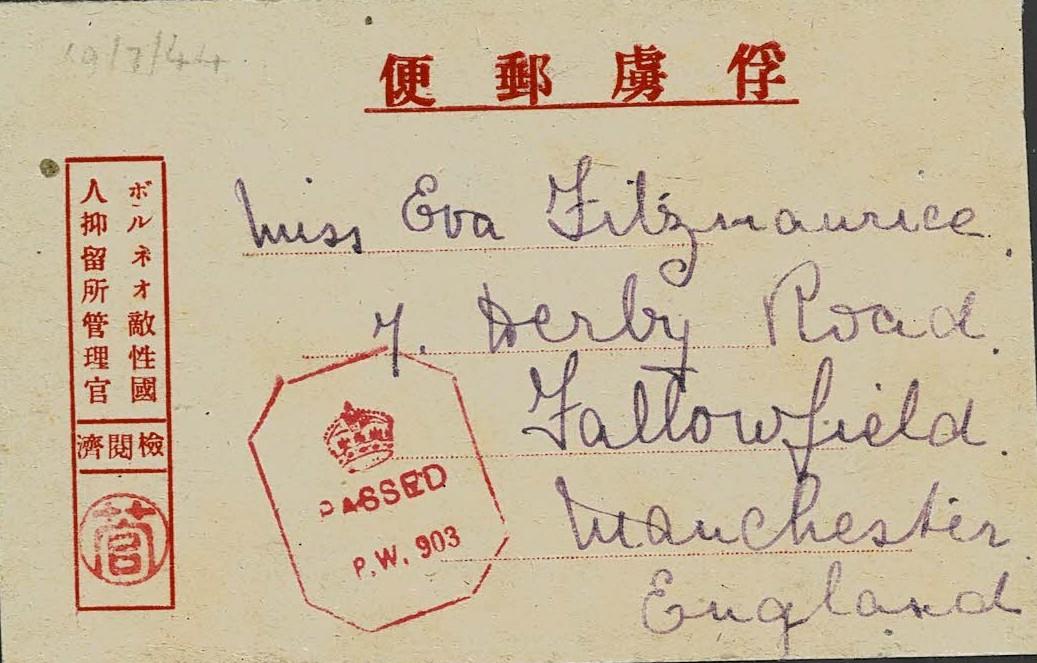 19/7/44
俘虜郵便
ボルネオ敵性國
人抑留所管理官
檢閲濟
菅
Miss Eva Fitzmaurice.
7. Derby Road.
Fallowfield.
Manchester.
England
PASSED
P.W. 903